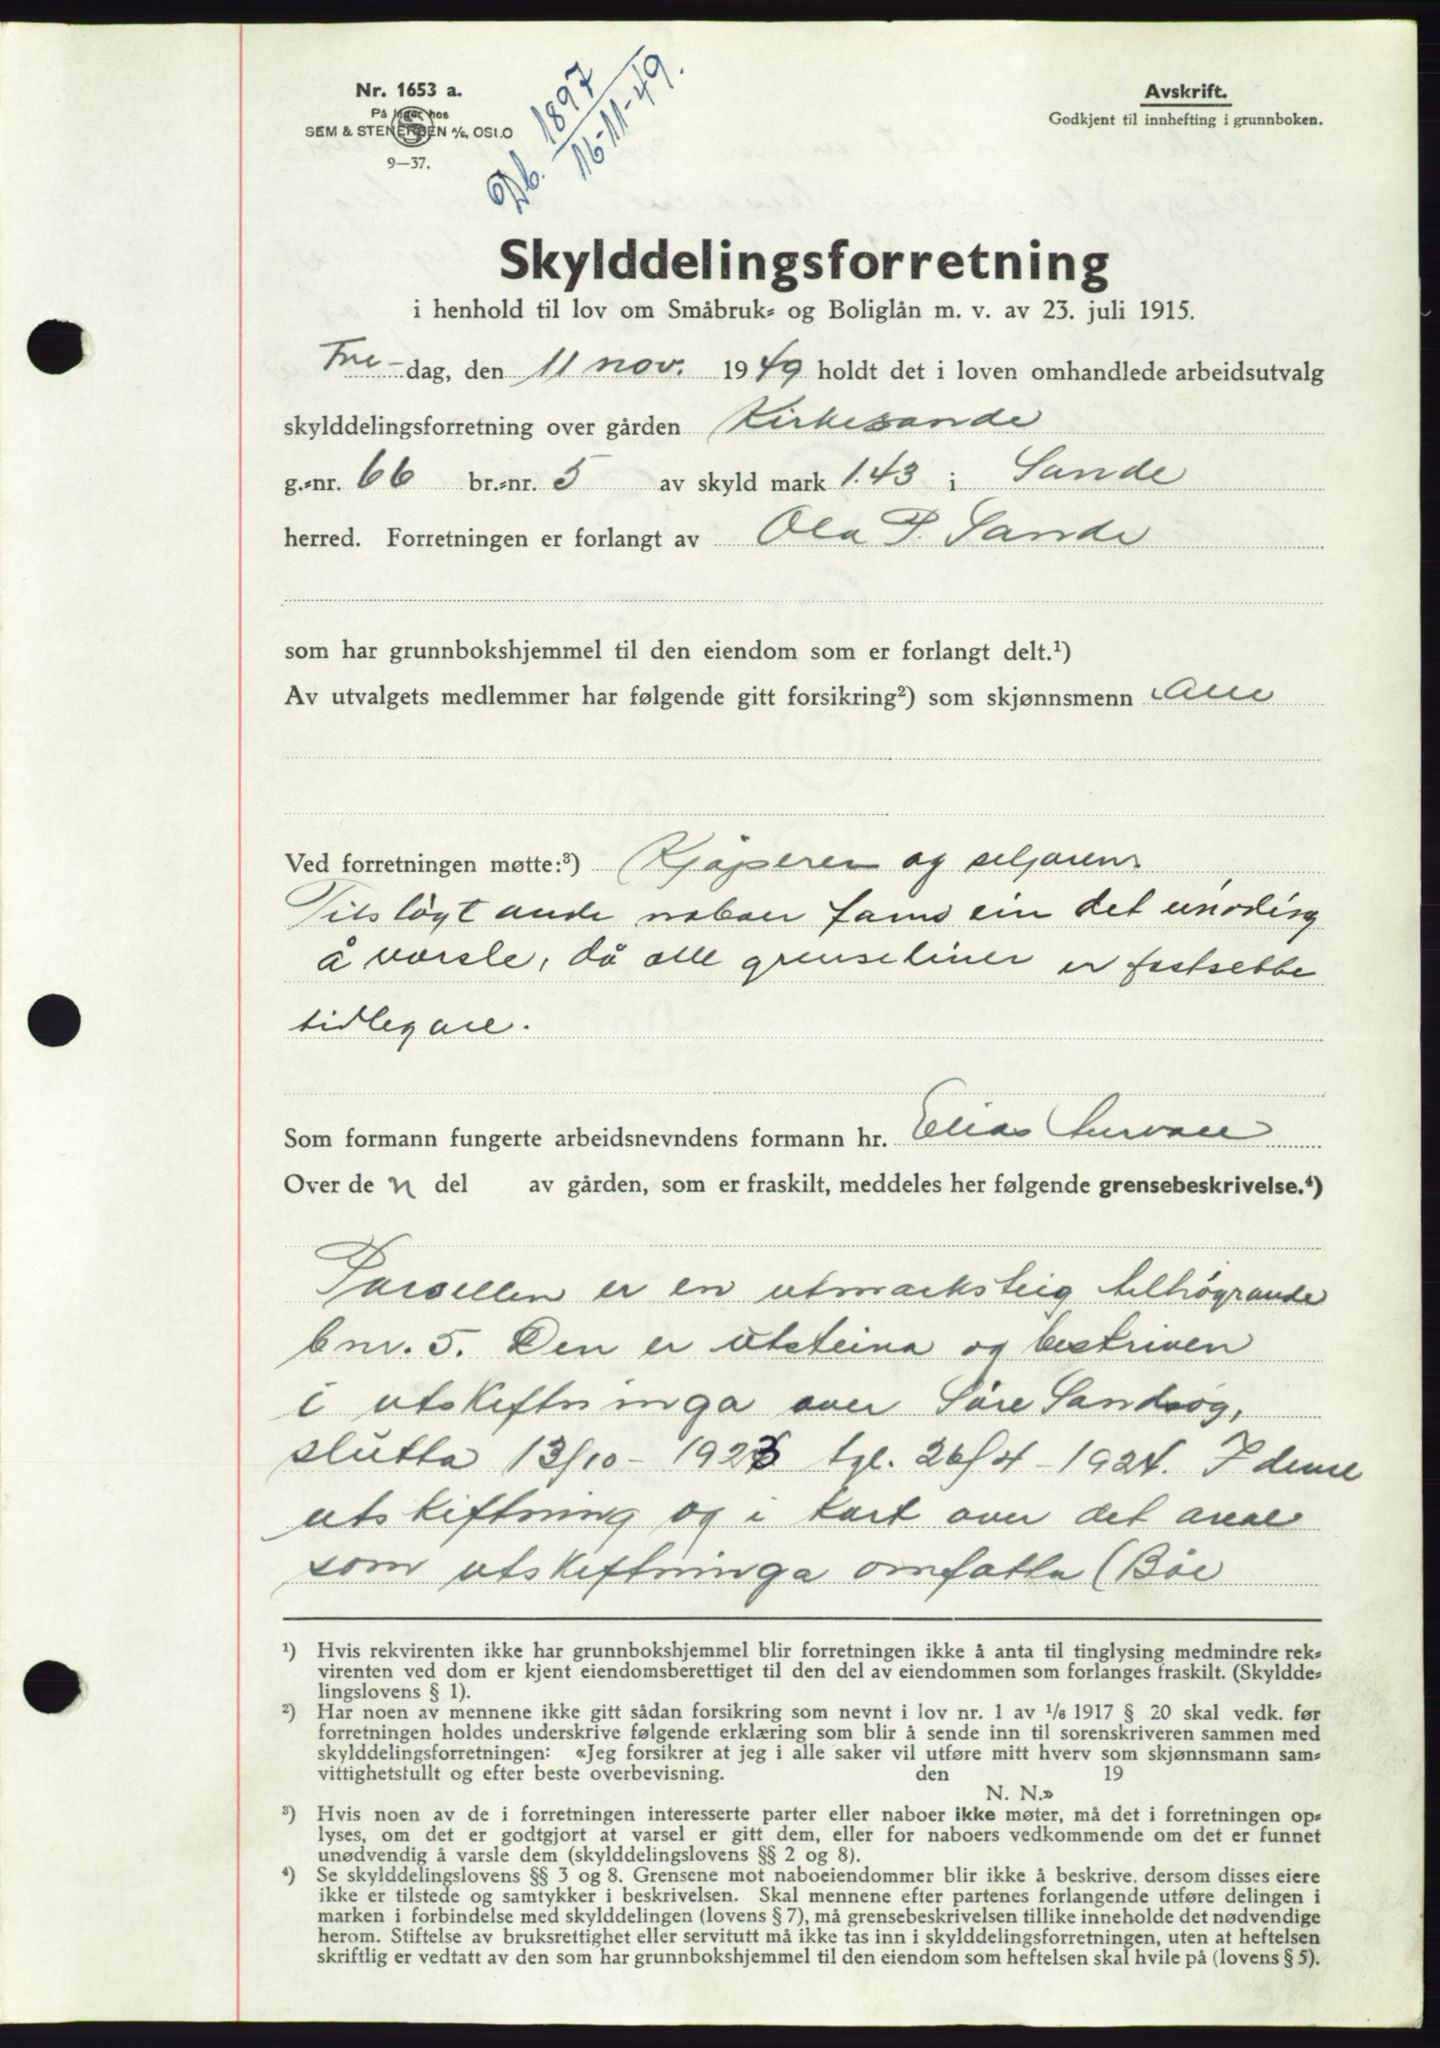 Nr. 1653 a.
På lager hos
SEM & STENERSEN A/S, OSLO
9—37.
Db. 1897
16-11-49.
Avskrift.
Godkjent til innhefting i grunnboken.
Skylddelingsforretning
i henhold til lov om Småbruk- og Boliglån m. v. av 23. juli 1915.
Fre-dag, den 11 nov. 1949 holdt det i loven omhandlede arbeidsutvalg
skylddelingsforretning over gården Kirkesande
g.-nr. 66 br.-nr. 5 av skyld mark 1.43 i Sande
herred. Forretningen er forlangt av Ola P. Sande
som har grunnbokshjemmel til den eiendom som er forlangt delt.¹)
Av utvalgets medlemmer har følgende gitt forsikring²) som skjønnsmenn Alle
Ved forretningen møtte:³) Kjøperen og seljaren.
Tilstøytande naboer fann ein det unødig
å varsle, då alle grenseliner er fastsette
tidlegare.
Som formann fungerte arbeidsnevndens formann hr. Elias
Over de n del av gården, som er fraskilt, meddeles her følgende grensebeskrivelse.⁴)
Parsellen er en utmarksteig tilhøyrande
bnr. 5. Den er utsteina og beskriven
i utskiftninga over Søre Sandsøg,
slutta 13/10 - 1923 tgl. 26/4 - 1924. I denne
utskiftning og i kart over det areal
som utskiftninga omfatta (Bøe
¹) Hvis rekvirenten ikke har grunnbokshjemmel blir forretningen ikke å anta til tinglysing medmindre rek-
virenten ved dom er kjent eiendomsberettiget til den del av eiendommen som forlanges fraskilt. (Skyldde-
lingslovens § 1).
²) Har noen av mennene ikke gitt sådan forsikring som nevnt i lov nr. 1 av 1/6 1917 § 20 skal vedk. før
forretningen holdes underskrive følgende erklæring som blir å sende inn til sorenskriveren sammen med
skylddelingsforretningen: «Jeg forsikrer at jeg i alle saker vil utføre mitt hverv som skjønnsmann sam-
vittighetsfullt og efter beste overbevisning. den 19
N. N.»
³) Hvis noen av de i forretningen interesserte parter eller naboer ikke møter, må det i forretningen op-
lyses, om det er godtgjort at varsel er gitt dem, eller for naboers vedkommende om det er funnet
unødvendig å varsle dem (skylddelingslovens §§ 2 og 8).
⁴) Se skylddelingslovens §§ 3 og 8. Grensene mot naboeiendommer blir ikke å beskrive, dersom disses eiere
ikke er tilstede og samtykker i beskrivelsen. Skal mennene efter partenes forlangende utføre delingen i
marken i forbindelse med skylddelingen (lovens § 7), må grensebeskrivelsen tillike inneholde det nødvendige
herom. Stiftelse av bruksrettighet eller servitutt må ikke tas inn i skylddelingsforretningen, uten at heftelsen
skriftlig er vedtatt av den som har grunnbokshjemmel til den eiendom som heftelsen skal hvile på (lovens § 5).